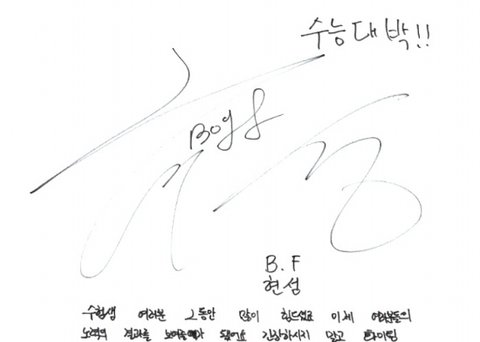 수능대박!!
Boyf
B.F
현성
수험생 여러분 그동안 많이 힘드셨죠 이제 여러분들의
노력의 결과를 보여줄때가 됐어요 긴장하시지 말고 화이팅